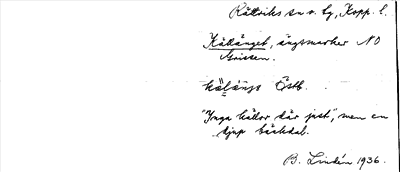 Rättviks sn o. tg, Kopp. l.
Källänget, ängsmarker NO
Östb.
"Inga källor där just", men en
djup bäckdal.
B. Lindén 1936.